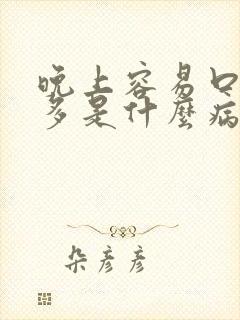 晚上容易口
多是什麼病
朵彦彦